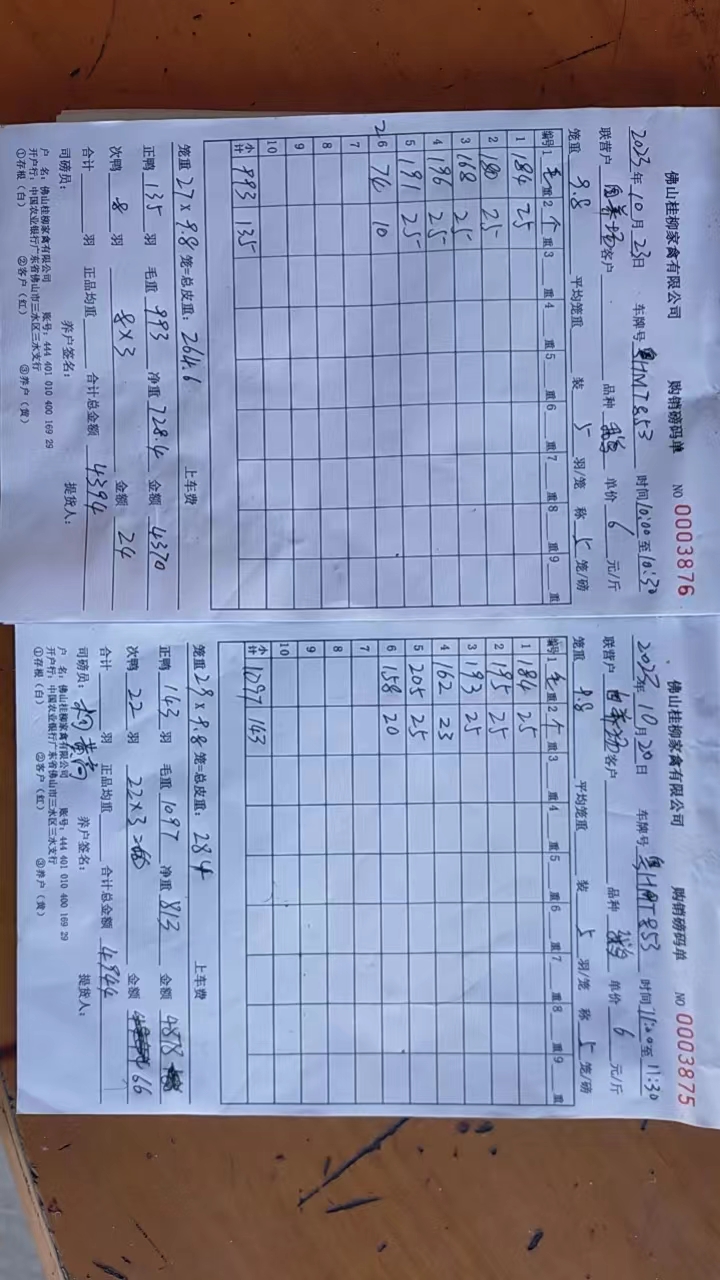 佛山桂柳家禽有限公司 购销磅码单 NO 0003876
2023年10月23日 车牌号 HMT853 时间10:00至10:30
联营户 自养场 客户 品种 单价 6 元/斤
笼重 9.8 平均笼重 装 5 羽/笼 称 5 笼/磅
编号 1 毛 重 2 个 重 3 重 4 重 5 重 6 重 7 重 8 重 9 重
1 184 25
2 180 25
3 168 25
4 196 25
5 191 25
2 6 74 10
7
8
9
10
小计 993 135
笼重 27×9.8 笼=总皮重: 264.6 上车费
正鸭 135 羽 毛重 993 净重 728.4 金额 4370
次鸭 8 羽 8×3 金额 24
合计 羽 正品均重 合计总金额 4394
司磅员: 养户签名: 提货人:
户 名: 佛山桂柳家禽有限公司 账号: 444 401 010 400 169 29
开户行: 中国农业银行广东省佛山市三水区三水支行
①存根(白) ②客户(红) ③养户(黄)
佛山桂柳家禽有限公司 购销磅码单 NO 0003875
2023年10月20日 车牌号 HMT853 时间11:00至11:30
联营户 自养场 客户 品种 单价 6 元/斤
笼重 9.8 平均笼重 装 5 羽/笼 称 5 笼/磅
编号 1 毛 重 2 个 重 3 重 4 重 5 重 6 重 7 重 8 重 9 重
1 184 25
2 195 25
3 193 25
4 162 23
5 205 25
6 158 20
7
8
9
10
小计 1097 143
笼重 29×9.8 笼=总皮重: 284 上车费
正鸭 143 羽 毛重 1097 净重 813 金额 4878
次鸭 22 羽 22×3 金额 66
合计 羽 正品均重 合计总金额 4944
司磅员: 养户签名: 提货人:
户 名: 佛山桂柳家禽有限公司 账号: 444 401 010 400 169 29
开户行: 中国农业银行广东省佛山市三水区三水支行
①存根(白) ②客户(红) ③养户(黄)